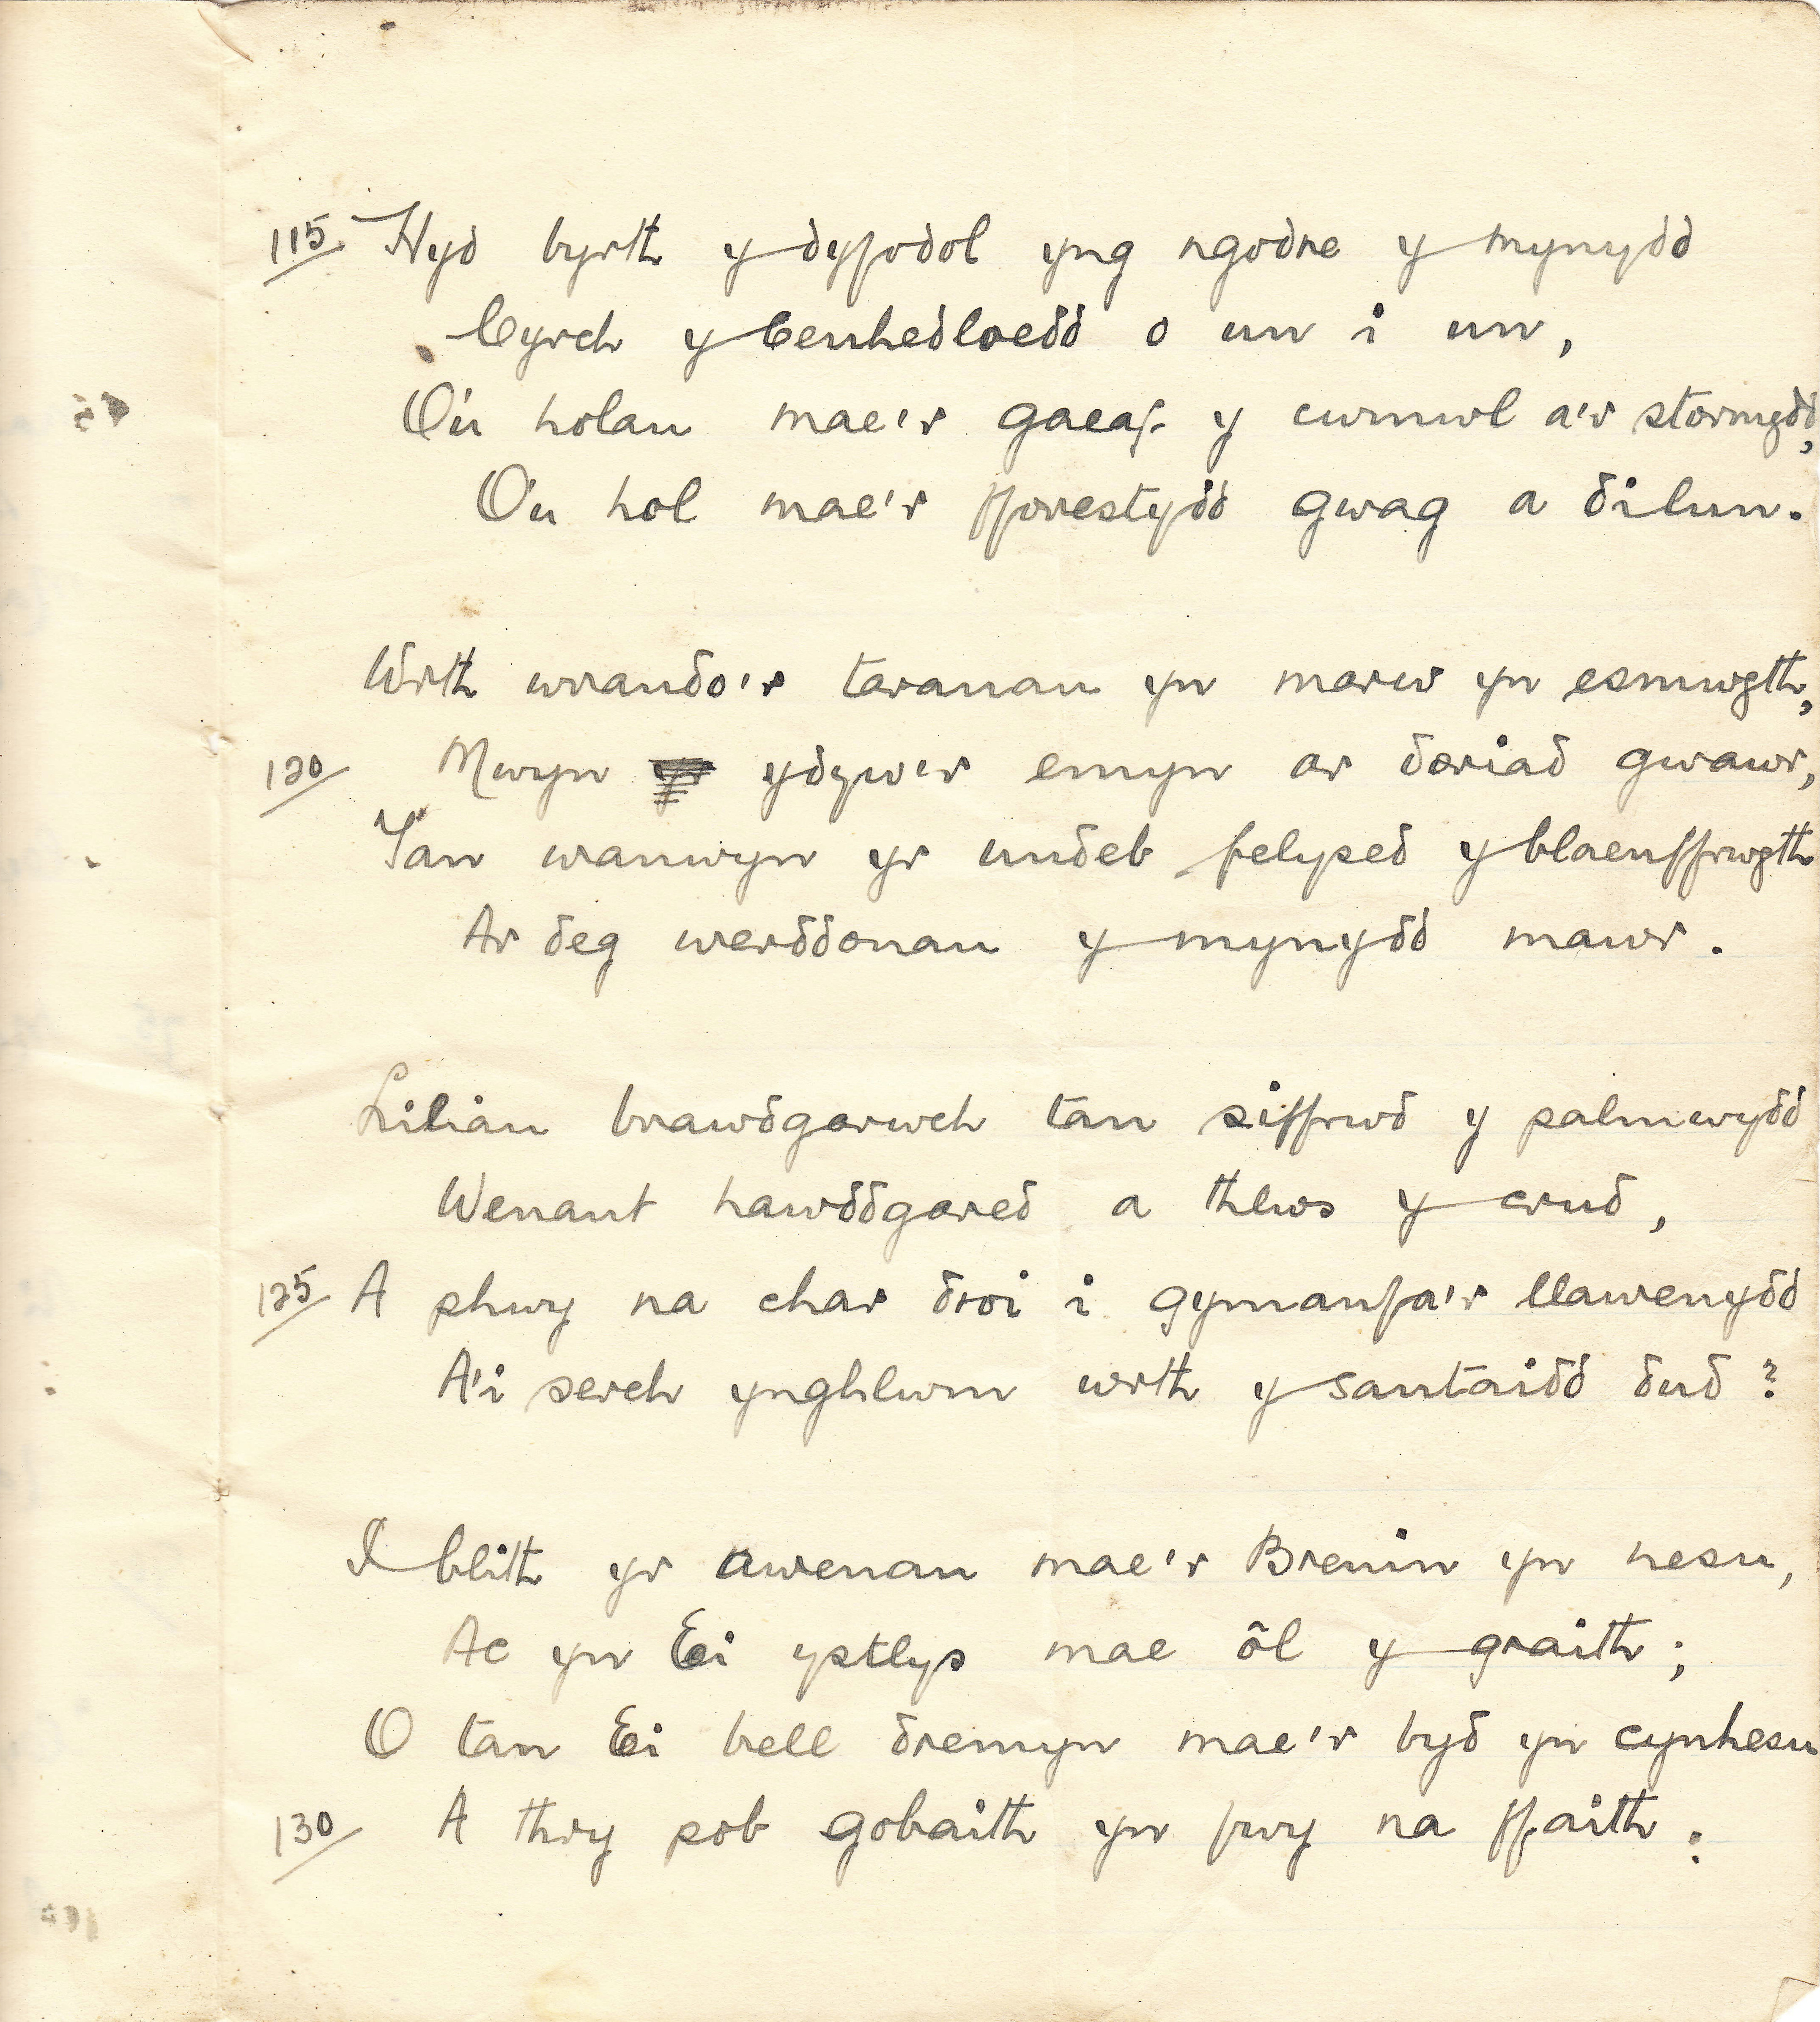 115 Hyd byrth y dyfodol yng ngodre y mynydd
Cyrch y Cenhedloedd o un i un,
O'u holau mae'r gaeaf y cwmwl a'r stormydd,
O'u hol mae'r fforestydd gwag a dilun.
Wrth wrando'r taranau yn marw yn esmwyth,
120 Mwyn ydyw'r emyn ar doriad gwawr,
Tan wanwyn yr undeb felysed y blaenffrwyth
Ar deg werddonau y mynydd mawr.
Liliau brawdgarwch tan siffrwd y palmwydd
Wenant hawddgared a thlws y crud,
125 A phwy na char droi i gymanfa'r llawenydd
A'i serch ynghlwm wrth y santaidd dud?
I blith yr awenau mae'r Brenin yn nesu,
Ac yn Ei ystlys mae ôl y graith;
O tan Ei bell dremyn mae'r byd yn cynhesu
130 A thry pob gobaith yn fwy na ffaith: